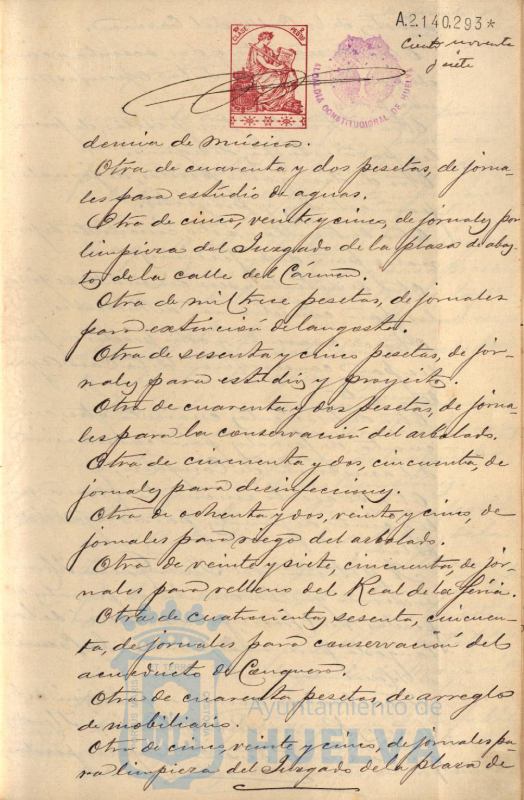 A.2.140.293*
Ciento noventa
y siete
ALCALDIA CONSTITUCIONAL DE HUELVA
demia de música.
Otra de cuarenta y dos pesetas, de jorna-
les para estudio de aguas.
Otra de cinco, veinte y cinco, de jornales por
limpieza del Juzgado de la plaza de abas-
tos de la calle del Cármen.
Otra de mil trece pesetas, de jornales
para extincion de langosta.
Otra de sesenta y cinco pesetas, de jor-
nales para estudios y proyectos.
Otra de cuarenta y dos pesetas, de jorna-
les para la conservación del arbolado.
Otra de cincuenta y dos, cincuenta, de
jornales para desinfecciones.
Otra de ochenta y dos, veinte y cinco, de
jornales para riego del arbolado.
Otra de veinte y siete, cincuenta, de jor-
nales para relleno del Real de la feria.
Otra de cuatrocientas sesenta, cincuen-
ta, de jornales para conservación del
acueducto de Conquero.
Otra de cuarenta pesetas, de arreglo
de mobiliario.
Otra de cinco, veinte y cinco, de jornales pa-
ra limpieza del Juzgado de la plaza de
Ayuntamiento de
HUELVA